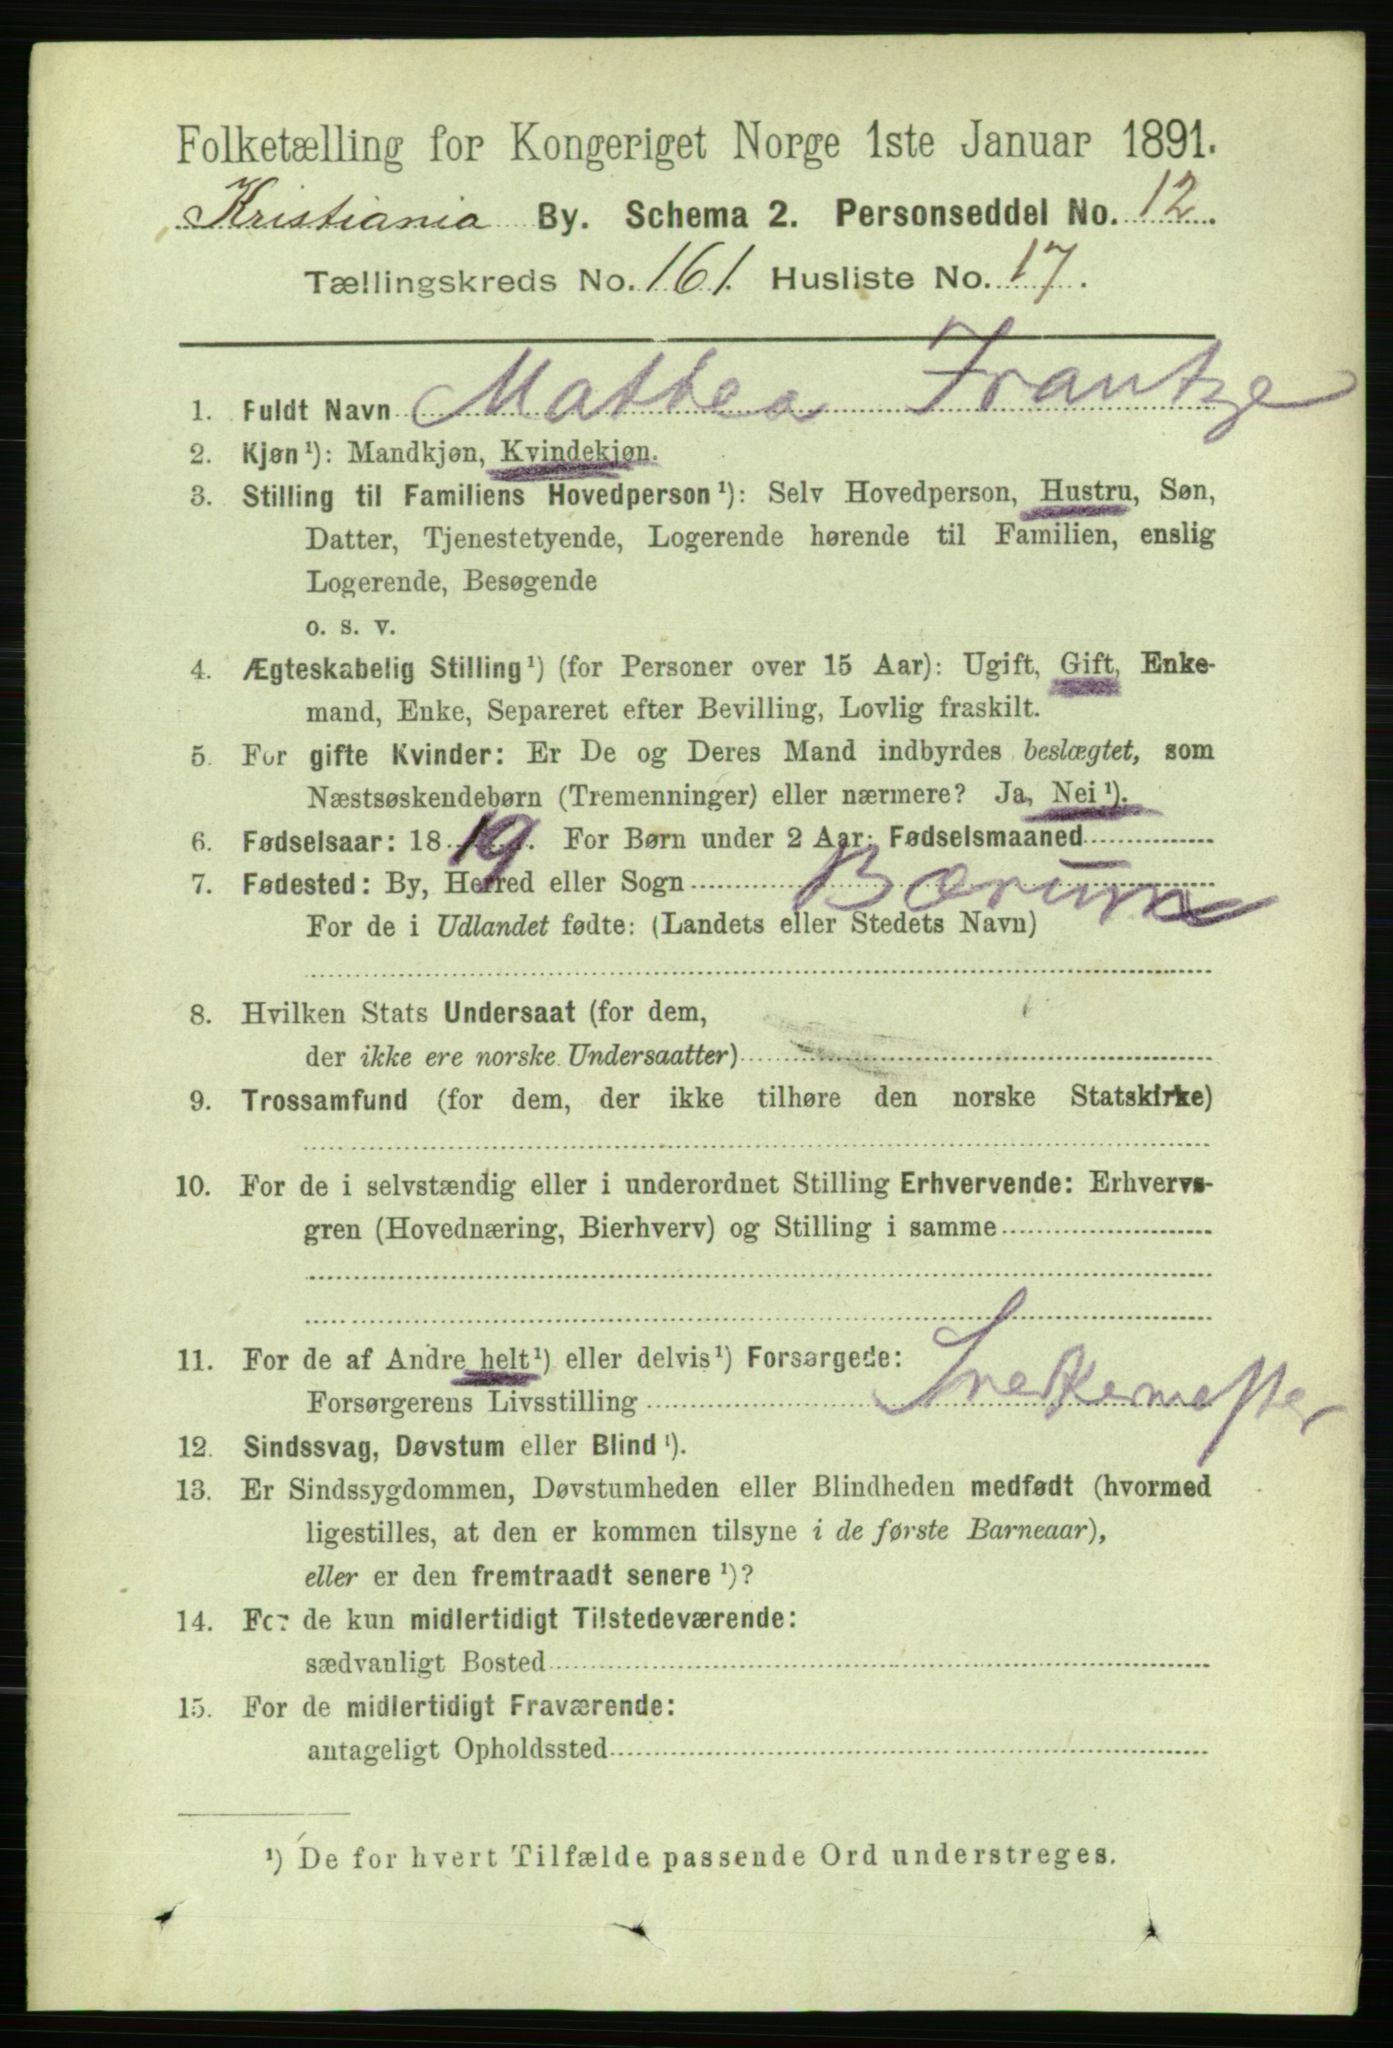 Folketælling for Kongeriget Norge 1ste Januar 1891.
Kristiania By. Schema 2. Personseddel No. 12.
Tællingskreds No. 161. Husliste No. 17.
1. Fuldt Navn Mathea Frantze
2. Kjøn ¹): Mandkjøn, Kvindekjøn.
3. Stilling til Familiens Hovedperson ¹): Selv Hovedperson, Hustru, Søn,
Datter, Tjenestetyende, Logerende hørende til Familien, enslig
Logerende, Besøgende
o. s. v.
4. Ægteskabelig Stilling ¹) (for Personer over 15 Aar): Ugift, Gift, Enke-
mand, Enke, Separeret efter Bevilling, Lovlig fraskilt.
5. For gifte Kvinder: Er De og Deres Mand indbyrdes beslægtet, som
Næstsøskendebørn (Tremenninger) eller nærmere? Ja, Nei ¹).
6. Fødselsaar: 1819. For Børn under 2 Aar: Fødselsmaaned
7. Fødested: By, Herred eller Sogn Bærum
For de i Udlandet fødte: (Landets eller Stedets Navn)
8. Hvilken Stats Undersaat (for dem,
der ikke ere norske Undersaatter)
9. Trossamfund (for dem, der ikke tilhøre den norske Statskirke)
10. For de i selvstændig eller i underordnet Stilling Erhvervende: Erhvervs-
gren (Hovednæring, Bierhverv) og Stilling i samme
11. For de af Andre helt ¹) eller delvis ¹) Forsørgede:
Forsørgerens Livsstilling Snekkermester
12. Sindssvag, Døvstum eller Blind ¹).
13. Er Sindssygdommen, Døvstumheden eller Blindheden medfødt (hvormed
ligestilles, at den er kommen tilsyne i de første Barneaar),
eller er den fremtraadt senere ¹)?
14. For de kun midlertidigt Tilstedeværende:
sædvanligt Bosted
15. For de midlertidigt Fraværende:
antageligt Opholdssted
¹) De for hvert Tilfælde passende Ord understreges.